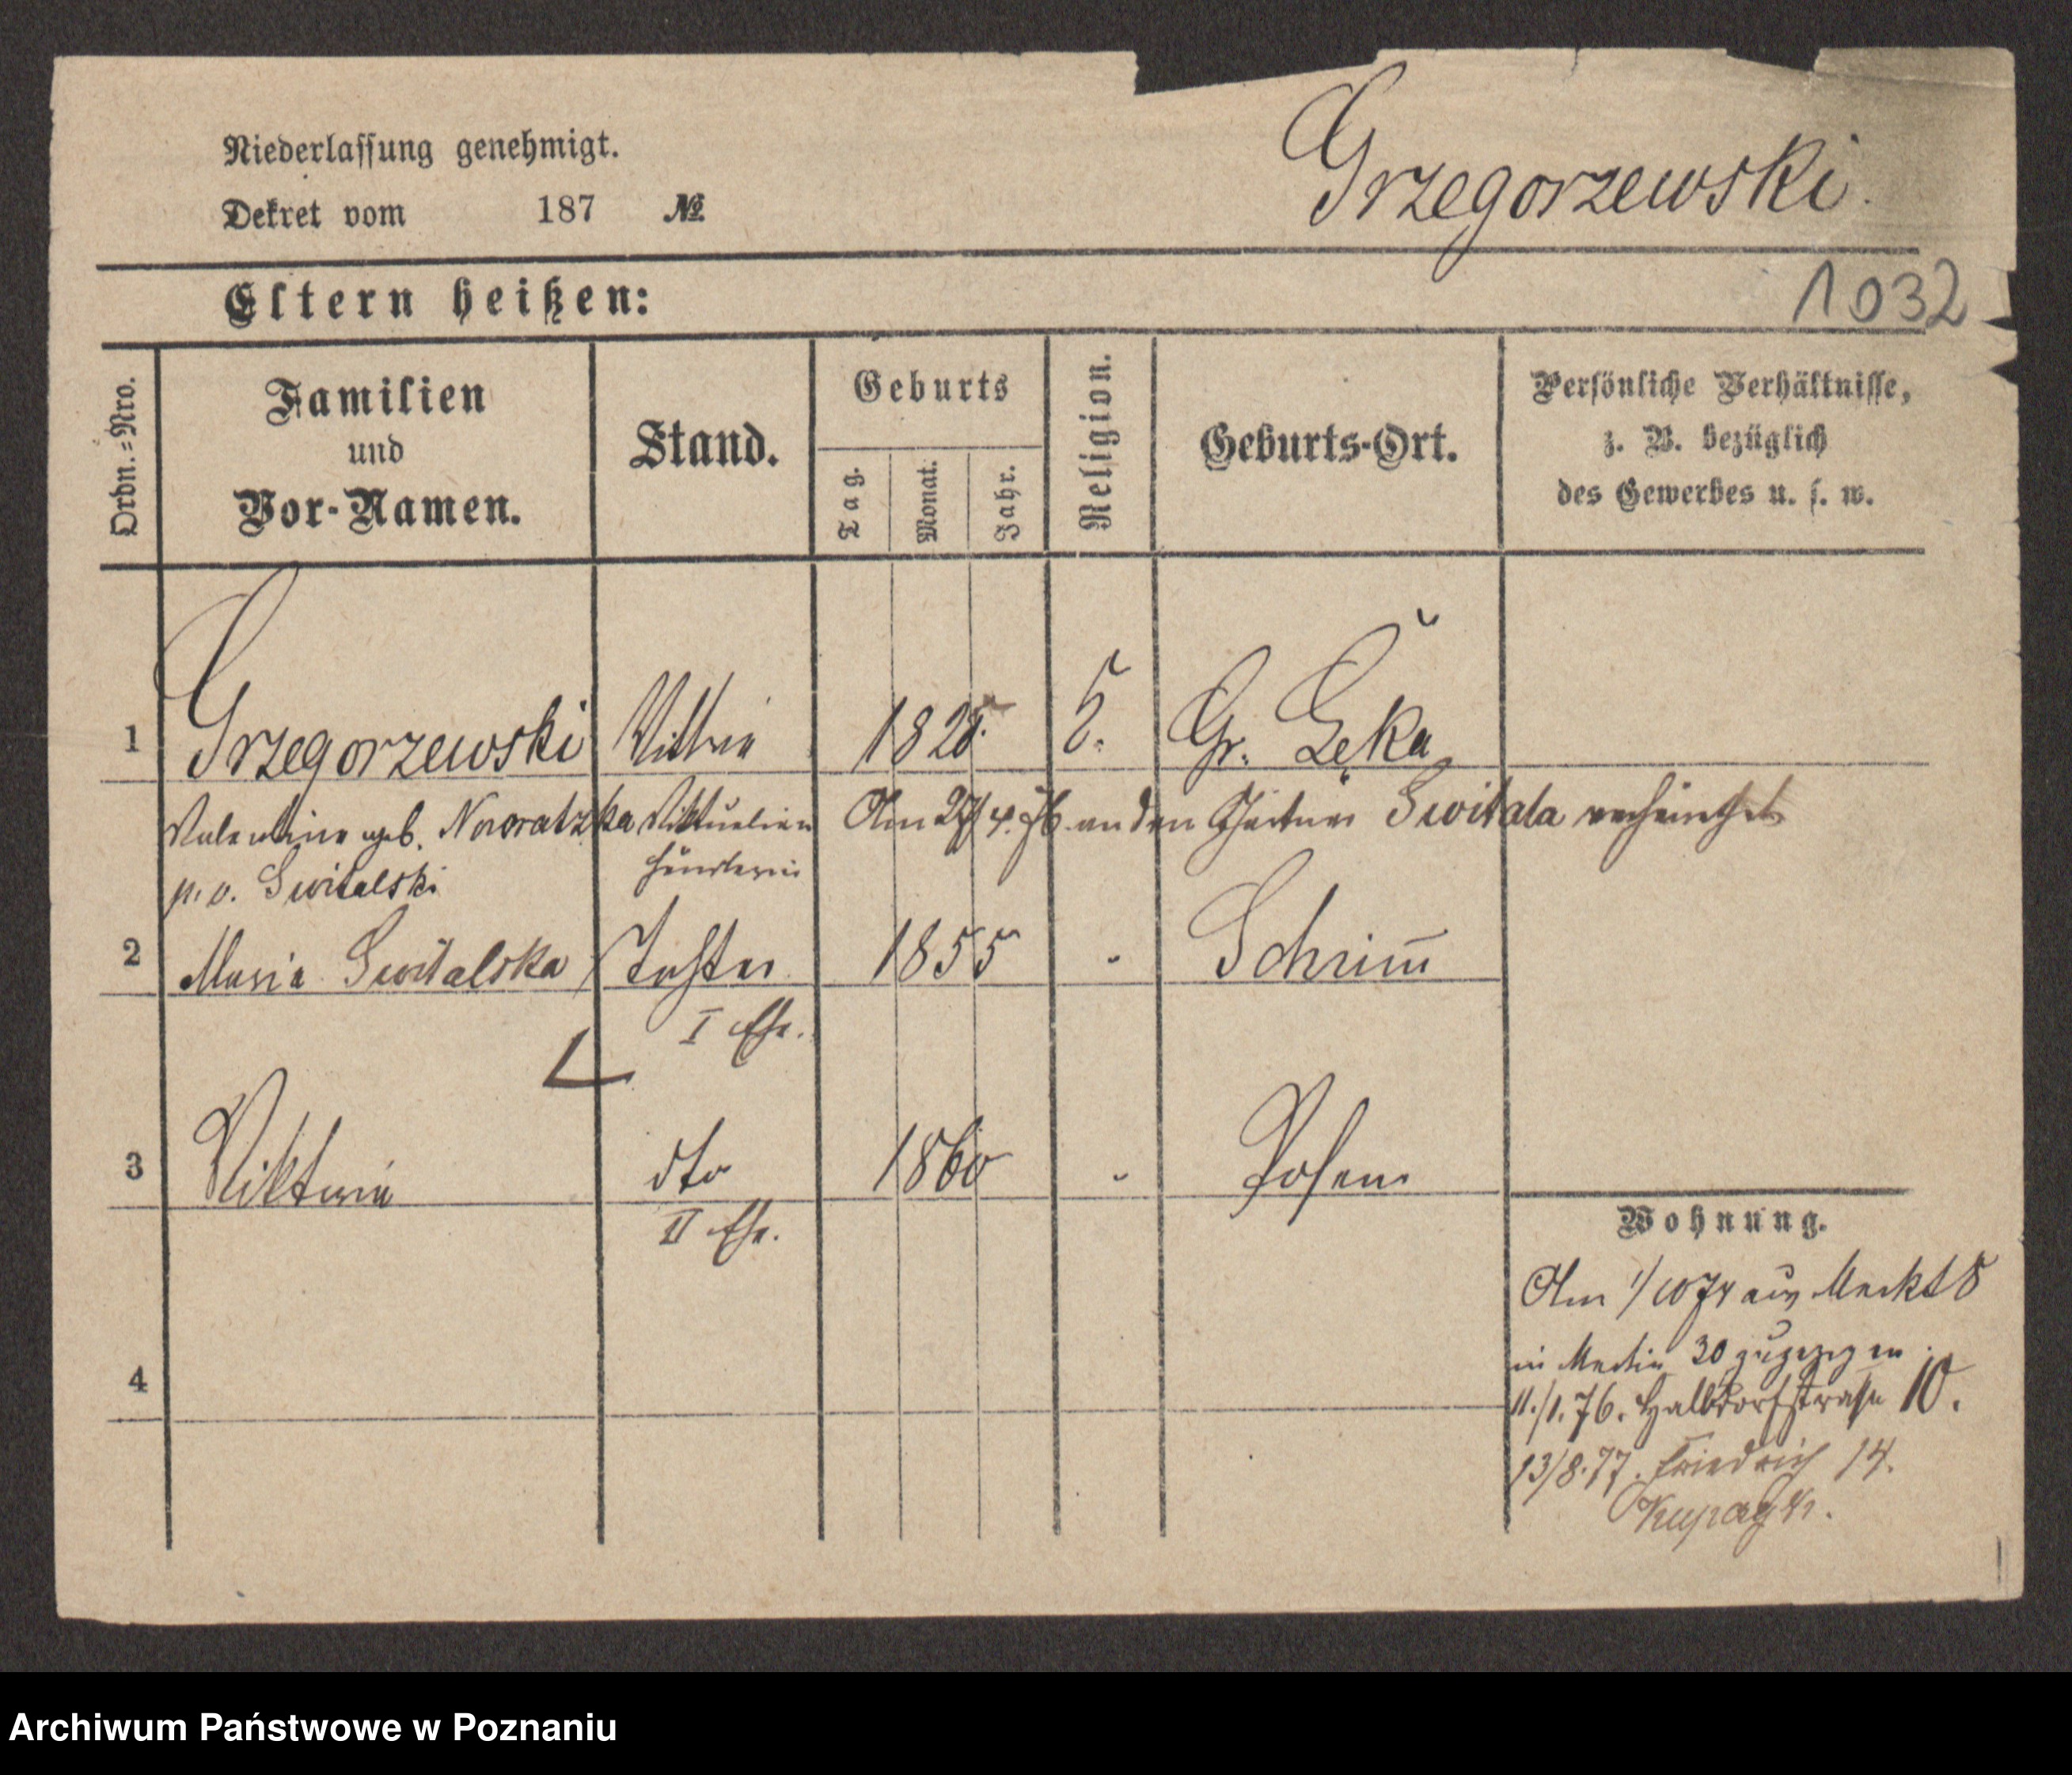 Niederlassung genehmigt.
Dekret vom 187 №
Grzegorzewski.
Eltern heißen:
1032
Ordn.=Nro.
Familien
und
Vor-Namen.
Stand.
Geburts
Tag.
Monat.
Jahr.
Religion.
Geburts-Ort.
Persönliche Verhältnisse,
z. B. bezüglich
des Gewerbes u. s. w.
1 Grzegorzewski Wittwe 1828. Gr. Lęka
Valentine geb. Noworatzka Viktualien Am 27/4. 76 an den Gärtner Switala verheirathet
p. v. Switalski händlerin
2 Maria Switalska Tochter 1855 " Schrim̄
I Ehe.
3 Viktoria dto 1860 " Posen
II Ehe.
Wohnung.
Am 1/10 74 aus Markt 8
in Martin 30 zugezogen.
11./1. 76. Halbdorfstraße 10.
13/8. 77. Friedrich 14.
4
Archiwum Państwowe w Poznaniu